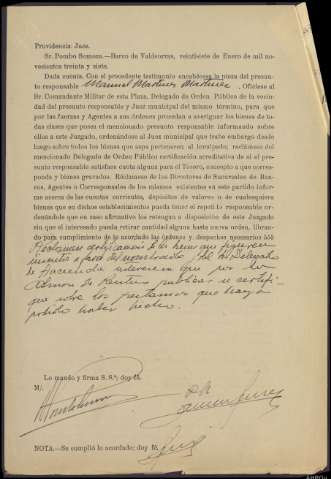 Providencia Juez.
Sr. Pombo Somoza.—Barco de Valdeorras, veintisiete de Enero de mil no-
vecientos treinta y siete.
Dada cuenta. Con el precedente testimonio encabécese la pieza del presun-
to responsable Manuel Martínez Martínez. Ofíciese al
Sr. Comandante Militar de esta Plaza, Delegado de Orden Público de la vecin-
dad del presunto responsable y Juez municipal del mismo término, para que
por las fuerzas y Agentes a sus órdenes proceden a averiguar los bienes de to-
das clases que posea el mencionado presunto responsable informando sobre
ellos a este Juzgado, ordenándose al Juez municipal que trabe embargo desde
luego sobre todos los bienes que sepa pertenecen al inculpado; recíbanse del
mencionado Delegado de Orden Público certificación acreditativa de si el pre-
sunto responsable satisface cuota alguna para el Tesoro, concepto a que corres-
ponda y bienes gravados. Reclámese de los Directores de Sucursales de Ban-
cos, Agentes o Corresponsales de los mismos existentes en este partido infor-
me acerca de las cuentas corrientes, depósitos de valores o de cualesquiera
bienes que en dichos establecimientos pueda tener el repetido responsable or-
denándoles que en caso afirmativo los retengan a disposición de este Juzgado
sin que el interesado pueda retirar cantidad alguna hasta nueva orden. Líbrense
para cumplimiento de lo acordado las órdenes y despachos necesarios
de Hacienda que por la
de Rentas públicas se certifi-
que sobre los préstamos que haya
podido haber hecho.
Lo mandó y firma S. S.ª; doy fé.
M/
NOTA.—Se cumplió lo acordado; doy fé.